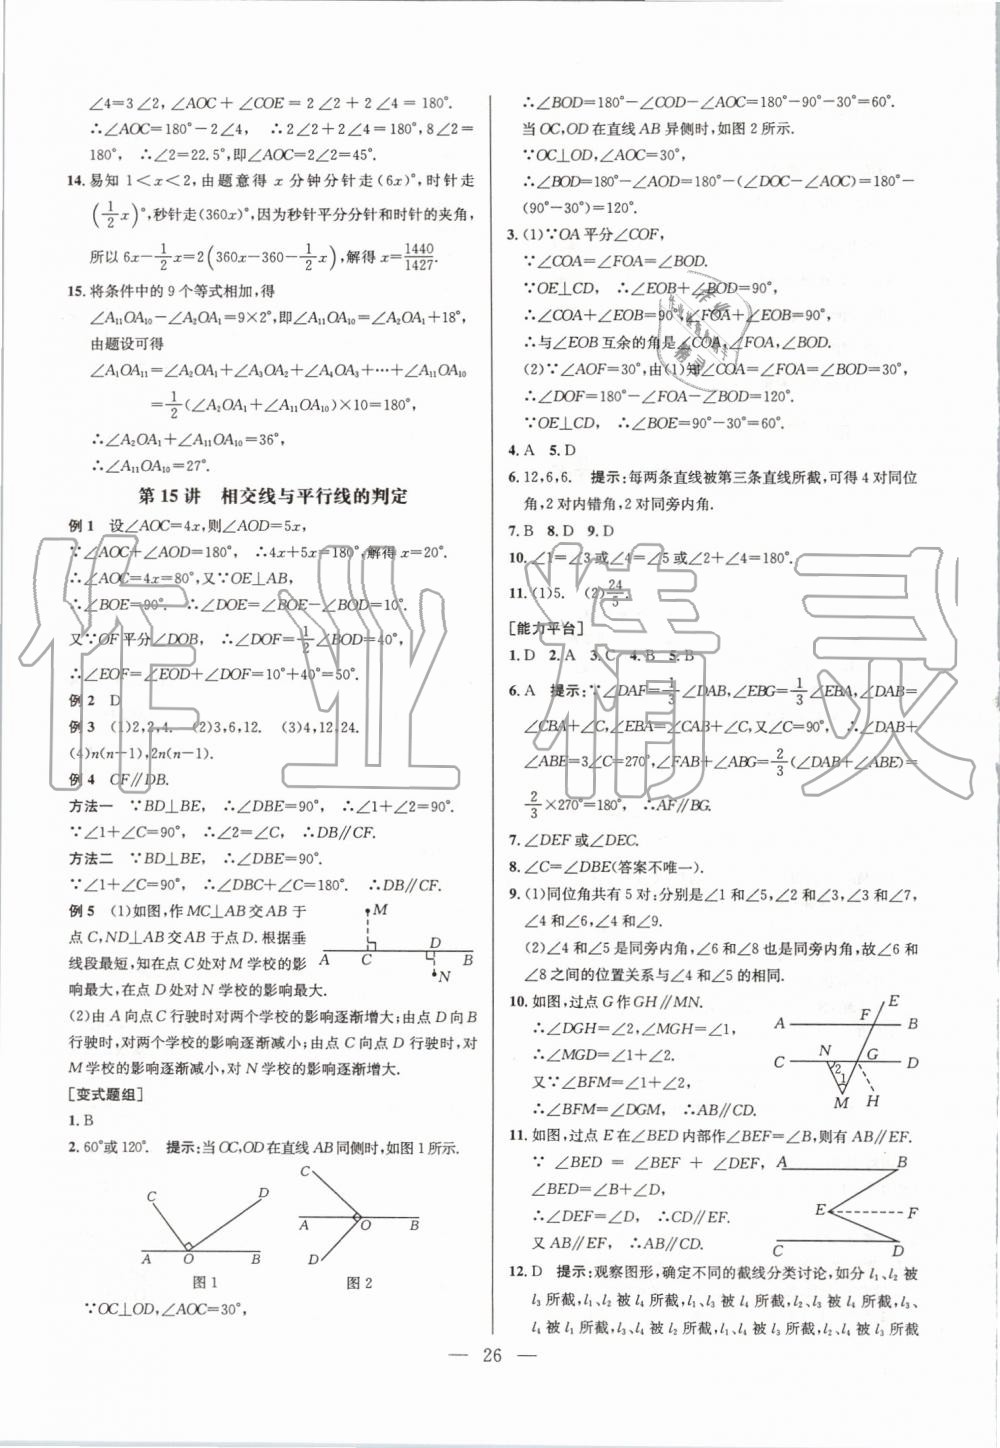 ∠4=3∠2,∠AOC+∠COE=2∠2+2∠4=180°.
∴∠AOC=180°-2∠4, ∴2∠2+2∠4=180°,8∠2=
180°, ∴∠2=22.5°,即∠AOC=2∠2=45°.
14. 易知1<x<2,由题意得 x 分钟分针走(6x)°,时针走
(1/2 x)°,秒针走(360x)°,因为秒针平分分针和时针的夹角,
所以 6x-1/2 x=2(360x-360-1/2 x),解得 x=1440/1427.
15. 将条件中的9个等式相加,得
∠A₁₁OA₁₀-∠A₂OA₁=9×2°,即∠A₁₁OA₁₀=∠A₂OA₁+18°,
由题设可得
∠A₁OA₁₁=∠A₂OA₁+∠A₃OA₂+∠A₄OA₃+…+∠A₁₁OA₁₀
=1/2(∠A₂OA₁+∠A₁₁OA₁₀)×10=180°,
∴∠A₂OA₁+∠A₁₁OA₁₀=36°,
∴∠A₁₁OA₁₀=27°.
第15讲 相交线与平行线的判定
例1 设∠AOC=4x,则∠AOD=5x,
∵∠AOC+∠AOD=180°, ∴4x+5x=180°,解得 x=20°.
∴∠AOC=4x=80°,又∵OE⊥AB,
∴∠BOE=90°. ∴∠DOE=∠BOE-∠BOD=10°.
又∵OF平分∠DOB, ∴∠DOF=1/2∠BOD=40°,
∴∠EOF=∠EOD+∠DOF=10°+40°=50°.
例2 D
例3 (1)2,2,4. (2)3,6,12. (3)4,12,24.
(4)n(n-1),2n(n-1).
例4 CF∥DB.
方法一 ∵BD⊥BE, ∴∠DBE=90°, ∴∠1+∠2=90°.
∵∠1+∠C=90°, ∴∠2=∠C, ∴DB∥CF.
方法二 ∵BD⊥BE, ∴∠DBE=90°,
∵∠1+∠C=90°, ∴∠DBC+∠C=180°. ∴DB∥CF.
例5 (1)如图,作MC⊥AB交AB于
点C,ND⊥AB交AB于点D.根据垂
线段最短,知在点C处对M学校的影
响最大,在点D处对N学校的影响最大.
M
A C D B
N
(2)由A向点C行驶时对两个学校的影响逐渐增大;由点D向B
行驶时,对两个学校的影响逐渐减小;由点C向点D行驶时,对
M学校的影响逐渐减小,对N学校的影响逐渐增大.
[变式题组]
1. B
2. 60°或120°. 提示:当OC,OD在直线AB同侧时,如图1所示.
C D
A O B
图1
C
A O B
D
图2
∵OC⊥OD,∠AOC=30°,
∴∠BOD=180°-∠COD-∠AOC=180°-90°-30°=60°.
当OC,OD在直线AB异侧时,如图2所示.
∵OC⊥OD,∠AOC=30°,
∴∠BOD=180°-∠AOD=180°-(∠DOC-∠AOC)=180°-
(90°-30°)=120°.
3. (1)∵OA平分∠COF,
∵∠COA=∠FOA=∠BOD.
∵OE⊥CD, ∴∠EOB+∠BOD=90°,
∴∠COA+∠EOB=90°,∠FOA+∠EOB=90°.
∴与∠EOB互余的角是∠COA,∠FOA,∠BOD.
(2)∵∠AOF=30°,由(1)知∠COA=∠FOA=∠BOD=30°,
∴∠DOF=180°-∠FOA-∠BOD=120°.
∵OE⊥CD, ∴∠EOB=90°-30°=60°.
4. A 5. D
6. 12,6,6. 提示:每两条直线被第三条直线所截,可得4对同位
角,2对内错角,2对同旁内角.
7. B 8. D 9. D
10. ∠1=∠3或∠4=∠5或∠2+∠4=180°.
11. (1)5. (2)24/5.
[能力平台]
1. D 2. A 3. C 4. B 5. B
6. A 提示:∵∠DAF=1/3∠DAB,∠EBG=1/3∠EBA,∠DAB=
∠CBA+∠C,∠EBA=∠CAB+∠C,又∠C=90°, ∴∠DAB+
∠ABE=3∠C=270°,∠FAB+∠ABG=2/3(∠DAB+∠ABE)=
2/3×270°=180°, ∴AF∥BG.
7. ∠DEF或∠DEC.
8. ∠C=∠DBE(答案不唯一).
9. (1)同位角共有5对:分别是∠1和∠5,∠2和∠3,∠3和∠7,
∠4和∠6,∠4和∠9.
(2)∠4和∠5是同旁内角,∠6和∠8也是同旁内角,故∠6和
∠8之间的位置关系与∠4和∠5的相同.
10. 如图,过点G作GH∥MN.
∴∠DGH=∠2,∠MGH=∠1,
∴∠MGD=∠1+∠2.
又∵∠BFM=∠1+∠2,
∴∠BFM=∠DGM, ∴AB∥CD.
E
A F B
C N G D
2 1
M H
11. 如图,过点E在∠BED内部作∠BEF=∠B,则有AB∥EF.
∵ ∠BED = ∠BEF + ∠DEF,
∠BED=∠B+∠D,
∴∠DEF=∠D, ∴CD∥EF.
又AB∥EF, ∴AB∥CD.
A B
E F
C D
12. D 提示:观察图形,确定不同的截线分类讨论,如分 l₁、l₂ 被
l₃ 所截,l₁、l₂ 被 l₄ 所截,l₁、l₃ 被 l₄ 所截,l₂、l₃ 被 l₄ 所截,l₃、
l₄ 被 l₁ 所截,l₃、l₄ 被 l₂ 所截,l₁、l₄ 被 l₃ 所截,l₂、l₄ 被 l₃ 所截
— 26 —
作业精灵